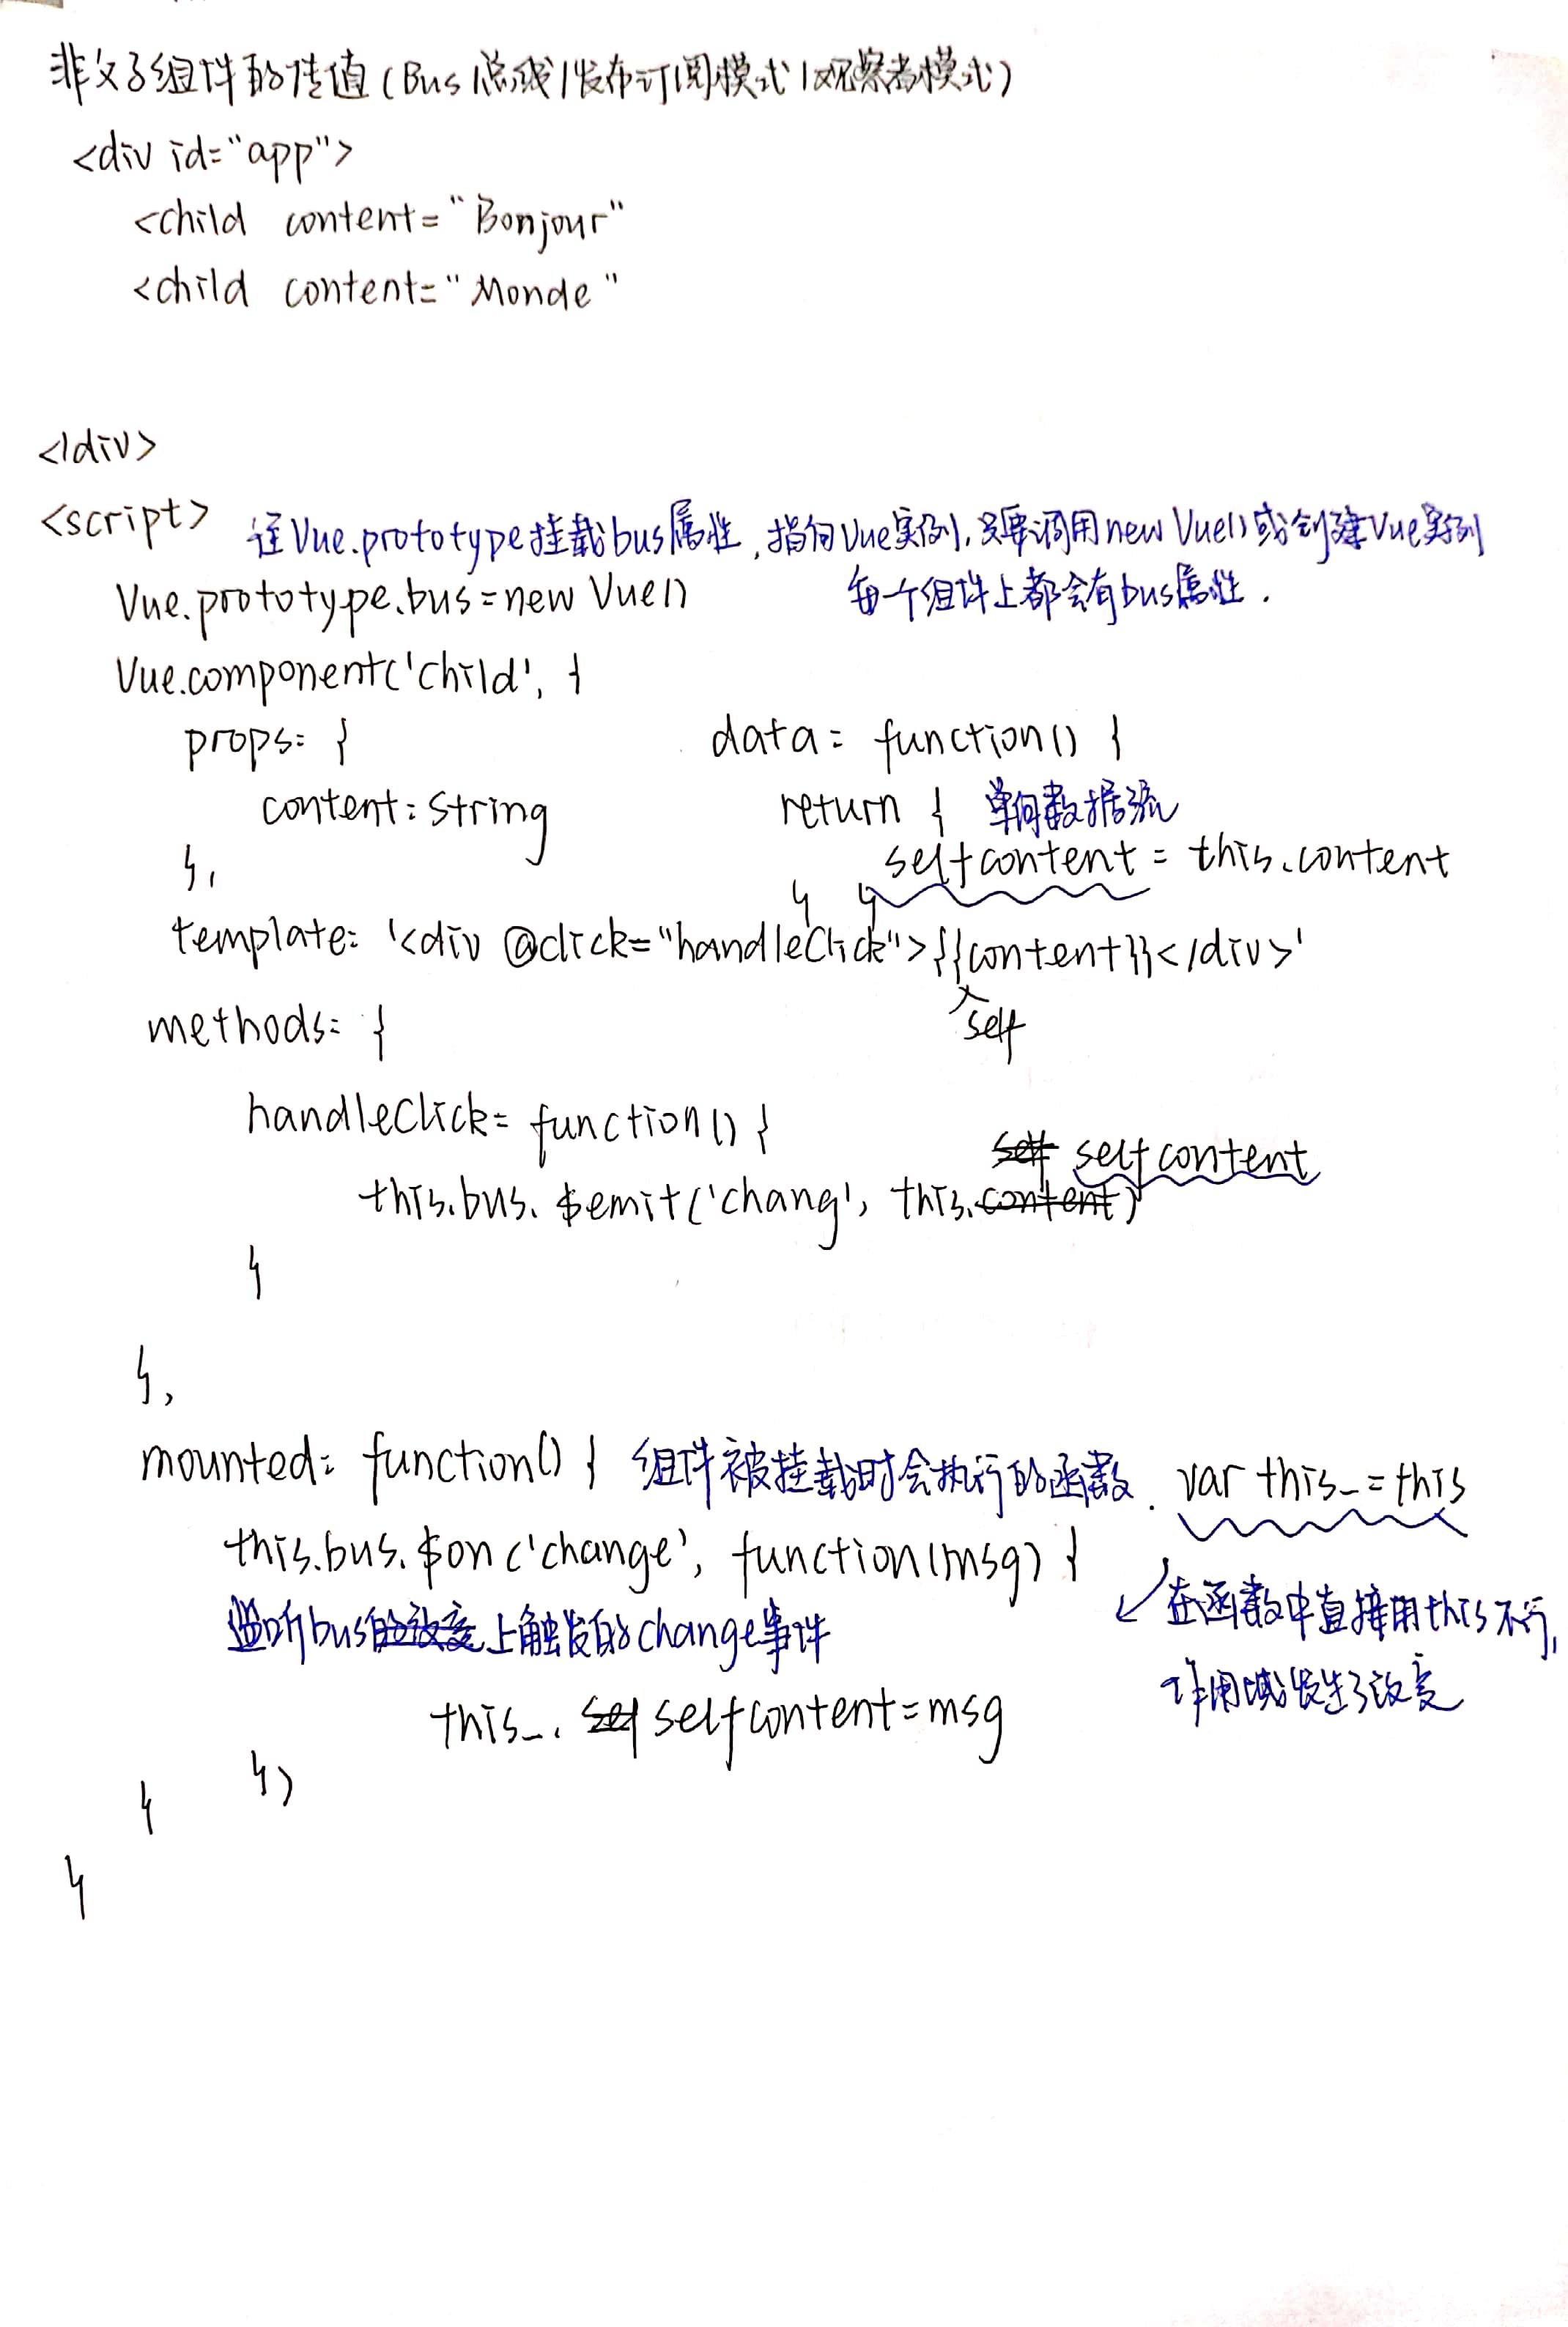 非父子组件的传值(Bus/总线/发布订阅模式/观察者模式)
<div id="app">
<child content="Bonjour"
<child content="Monde"
</div>
<script> 往Vue.prototype挂载bus属性,指向Vue实例,只要调用new Vue()或创建Vue实例
Vue.prototype.bus=new Vue() 每个组件上都会有bus属性.
Vue.component('child', {
props: { data: function() {
content: String return { 单向数据流
}, selfcontent = this.content
} }
template: '<div @click="handleClick">{{content}}</div>'
self
methods: {
handleClick: function() {
self selfcontent
this.bus.$emit('chang', this.content)
}
},
mounted: function() { 组件被挂载时会执行的函数. var this_=this
this.bus.$on('change', function(msg) {
监听bus的改变上触发的change事件 ↙在函数中直接用this不行,
作用域发生了改变
this_. self selfcontent=msg
} })
}